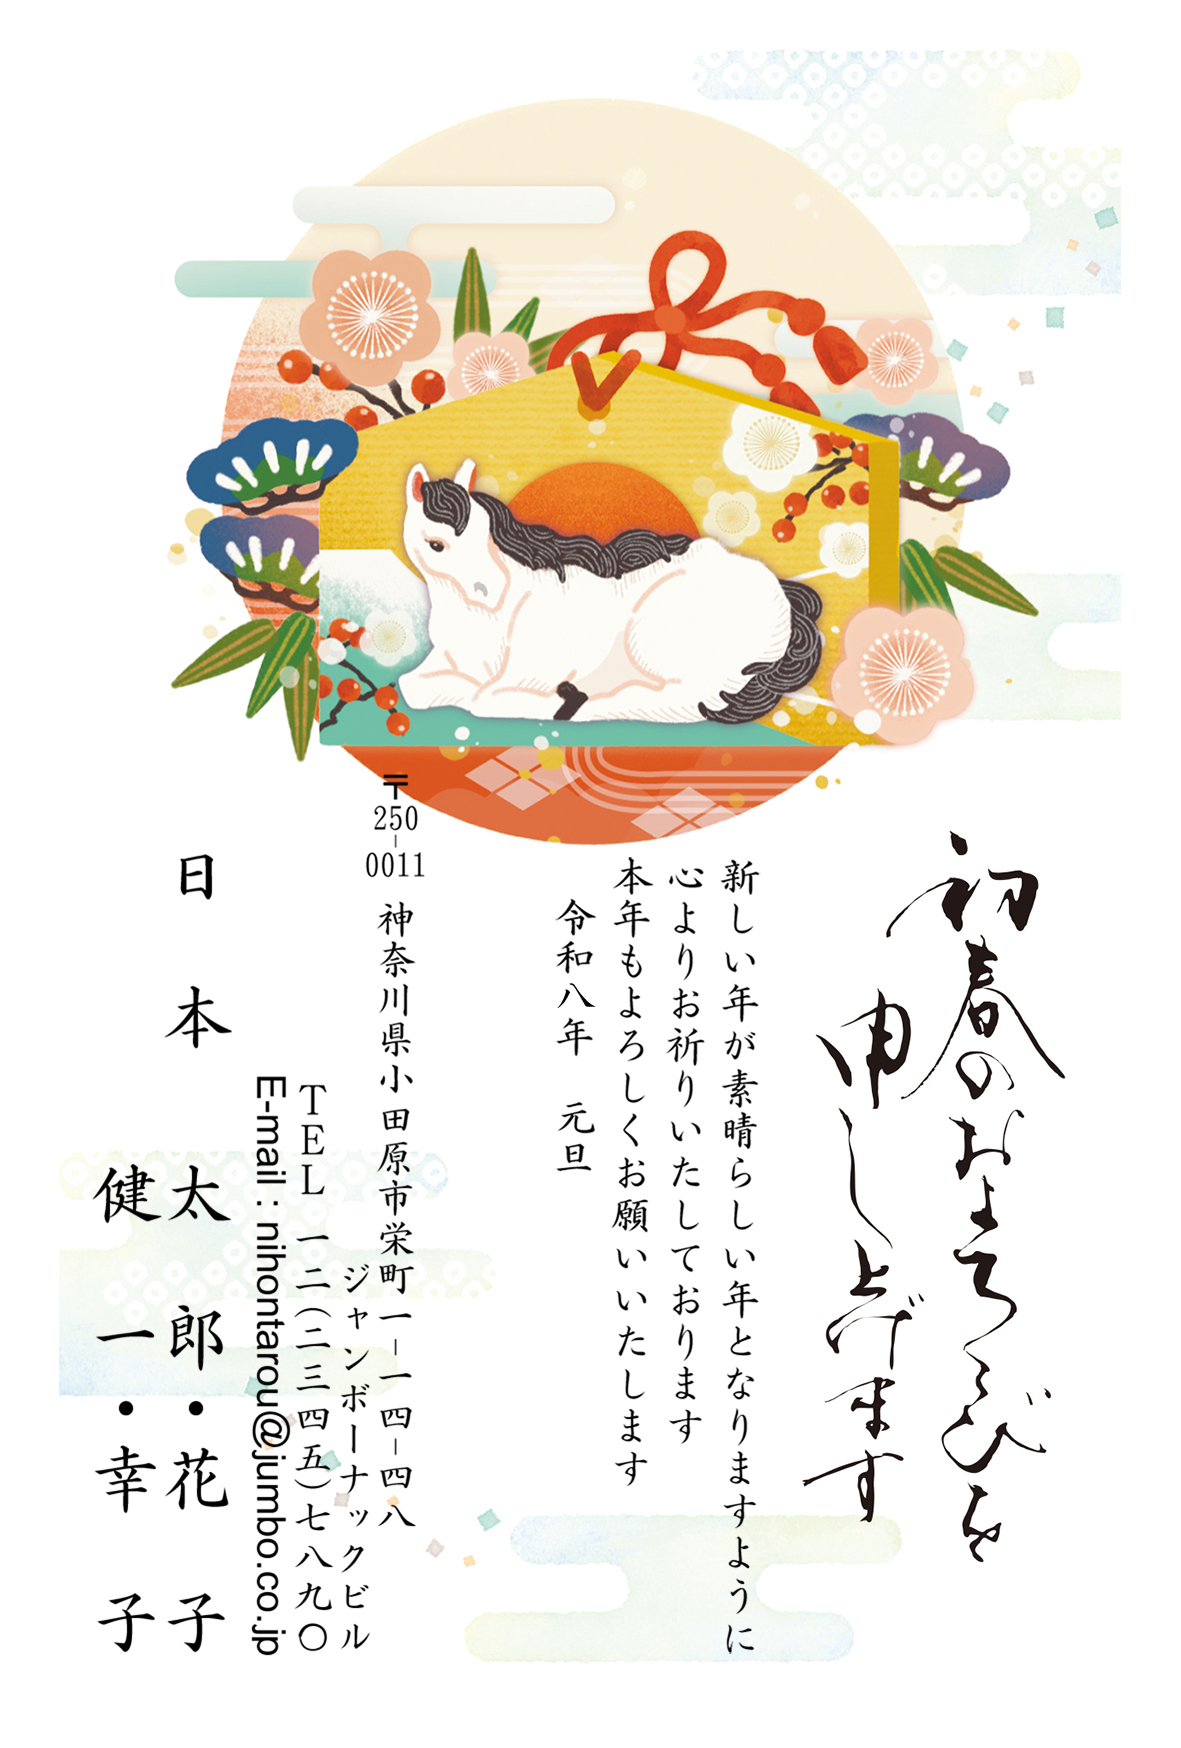 初春のおよろこびを
申し上げます
新しい年が素晴らしい年となりますように
心よりお祈りいたしております
本年もよろしくお願いいたします
令和八年　元旦
〒250-0011
神奈川県小田原市栄町一-一四-四八
ジャンボーナックビル
TEL 一二(二三四五)七八九〇
E-mail : nihontarou@jumbo.co.jp
日本　太郎・花子
健一・幸子